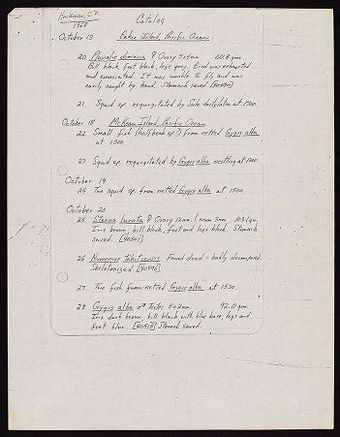 Hackman, C.D.
1968
Catalog
October 13 Baker Island, Pacific Ocean
20. Pluvialis dominica ♀ Ovary 5x4mm 60.8 gm.
Bill black, feet black, legs grey. Bird was exhausted
and emaciated. It was unable to fly and was
easily caught by hand. Stomach saved
21. Squid sp. regurgitated by Sula dactylatra at 1900.
October 18 McKean Island, Pacific Ocean
22. Small fish (half beak sp?) from netted Gygis alba
at 1500.
23. Squid sp. regurgitated by Gygis alba nestling at 1200.
October 19
24. Two squid sp. from netted Gygis alba at 1500.
October 20
25. Sterna lunata ♀ Ovary 12mm. Lorum 3mm 103.1 gm.
Iris brown, bill black, feet and legs black. Stomach
saved.
26 Numenius tahitiensis Found dead - badly decomposed.
Skeletonized
27. Two fish from netted Gygis alba at 1500.
28 Gygis alba ♂ Testes 5x2mm. 92.0 gm.
Iris dark brown, bill black with blue base, legs and
feet blue. Stomach saved.